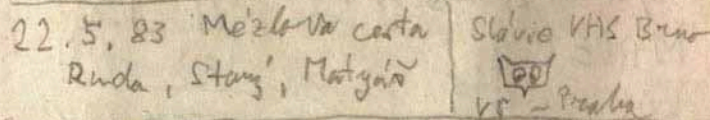 22.5.83 Mézlova cesta
Ruda, Starý, Matyáš
Slávie VHS Brno
VŠ - Praha